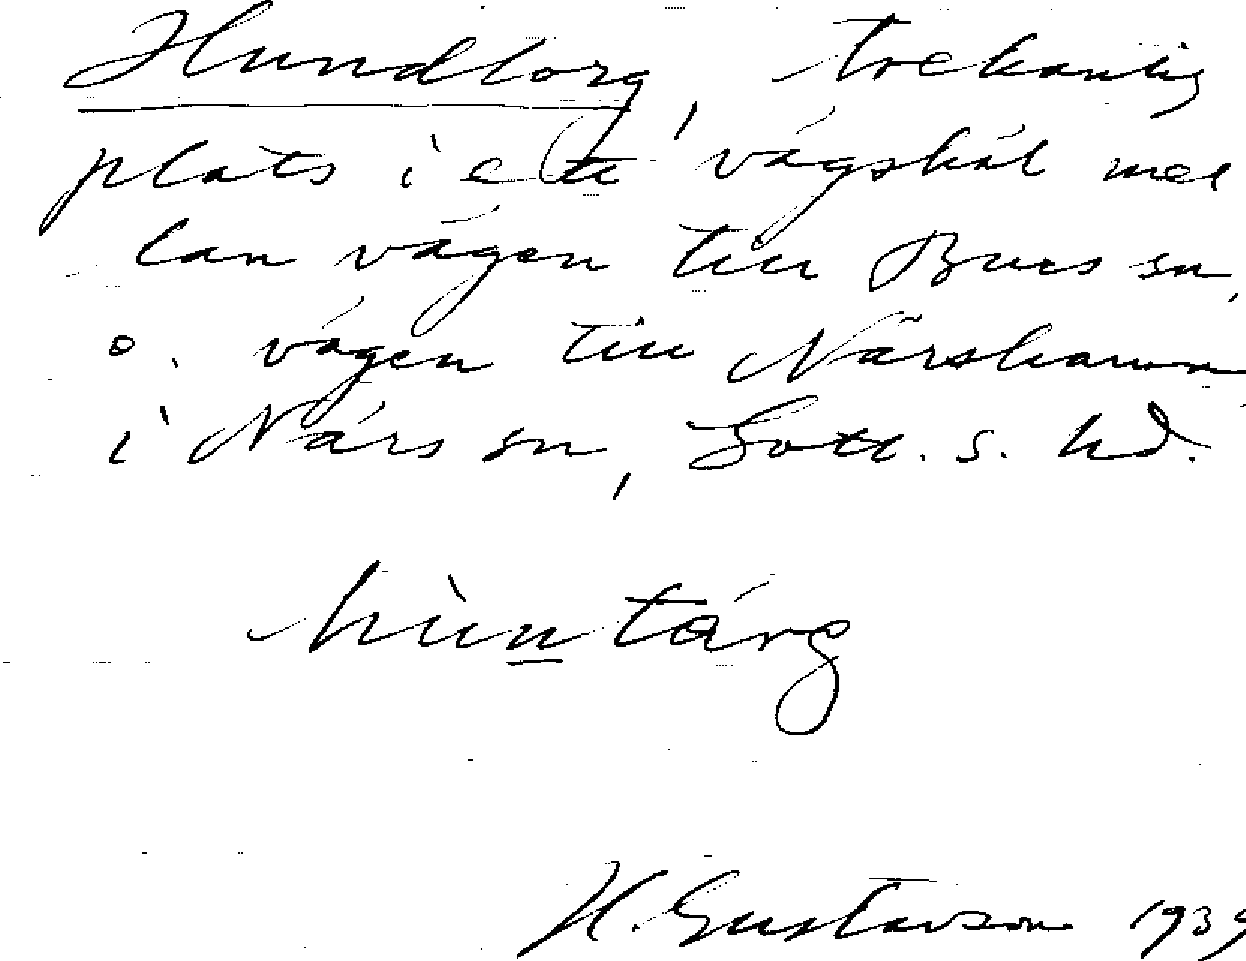 Hundtorg, trekantig
plats i ett vägskäl mel
lan vägen till Burs sn,
o. vägen till Närshamn
i När sn, Gotl. s. hd.
hùntárg
H. Gustavson 1939